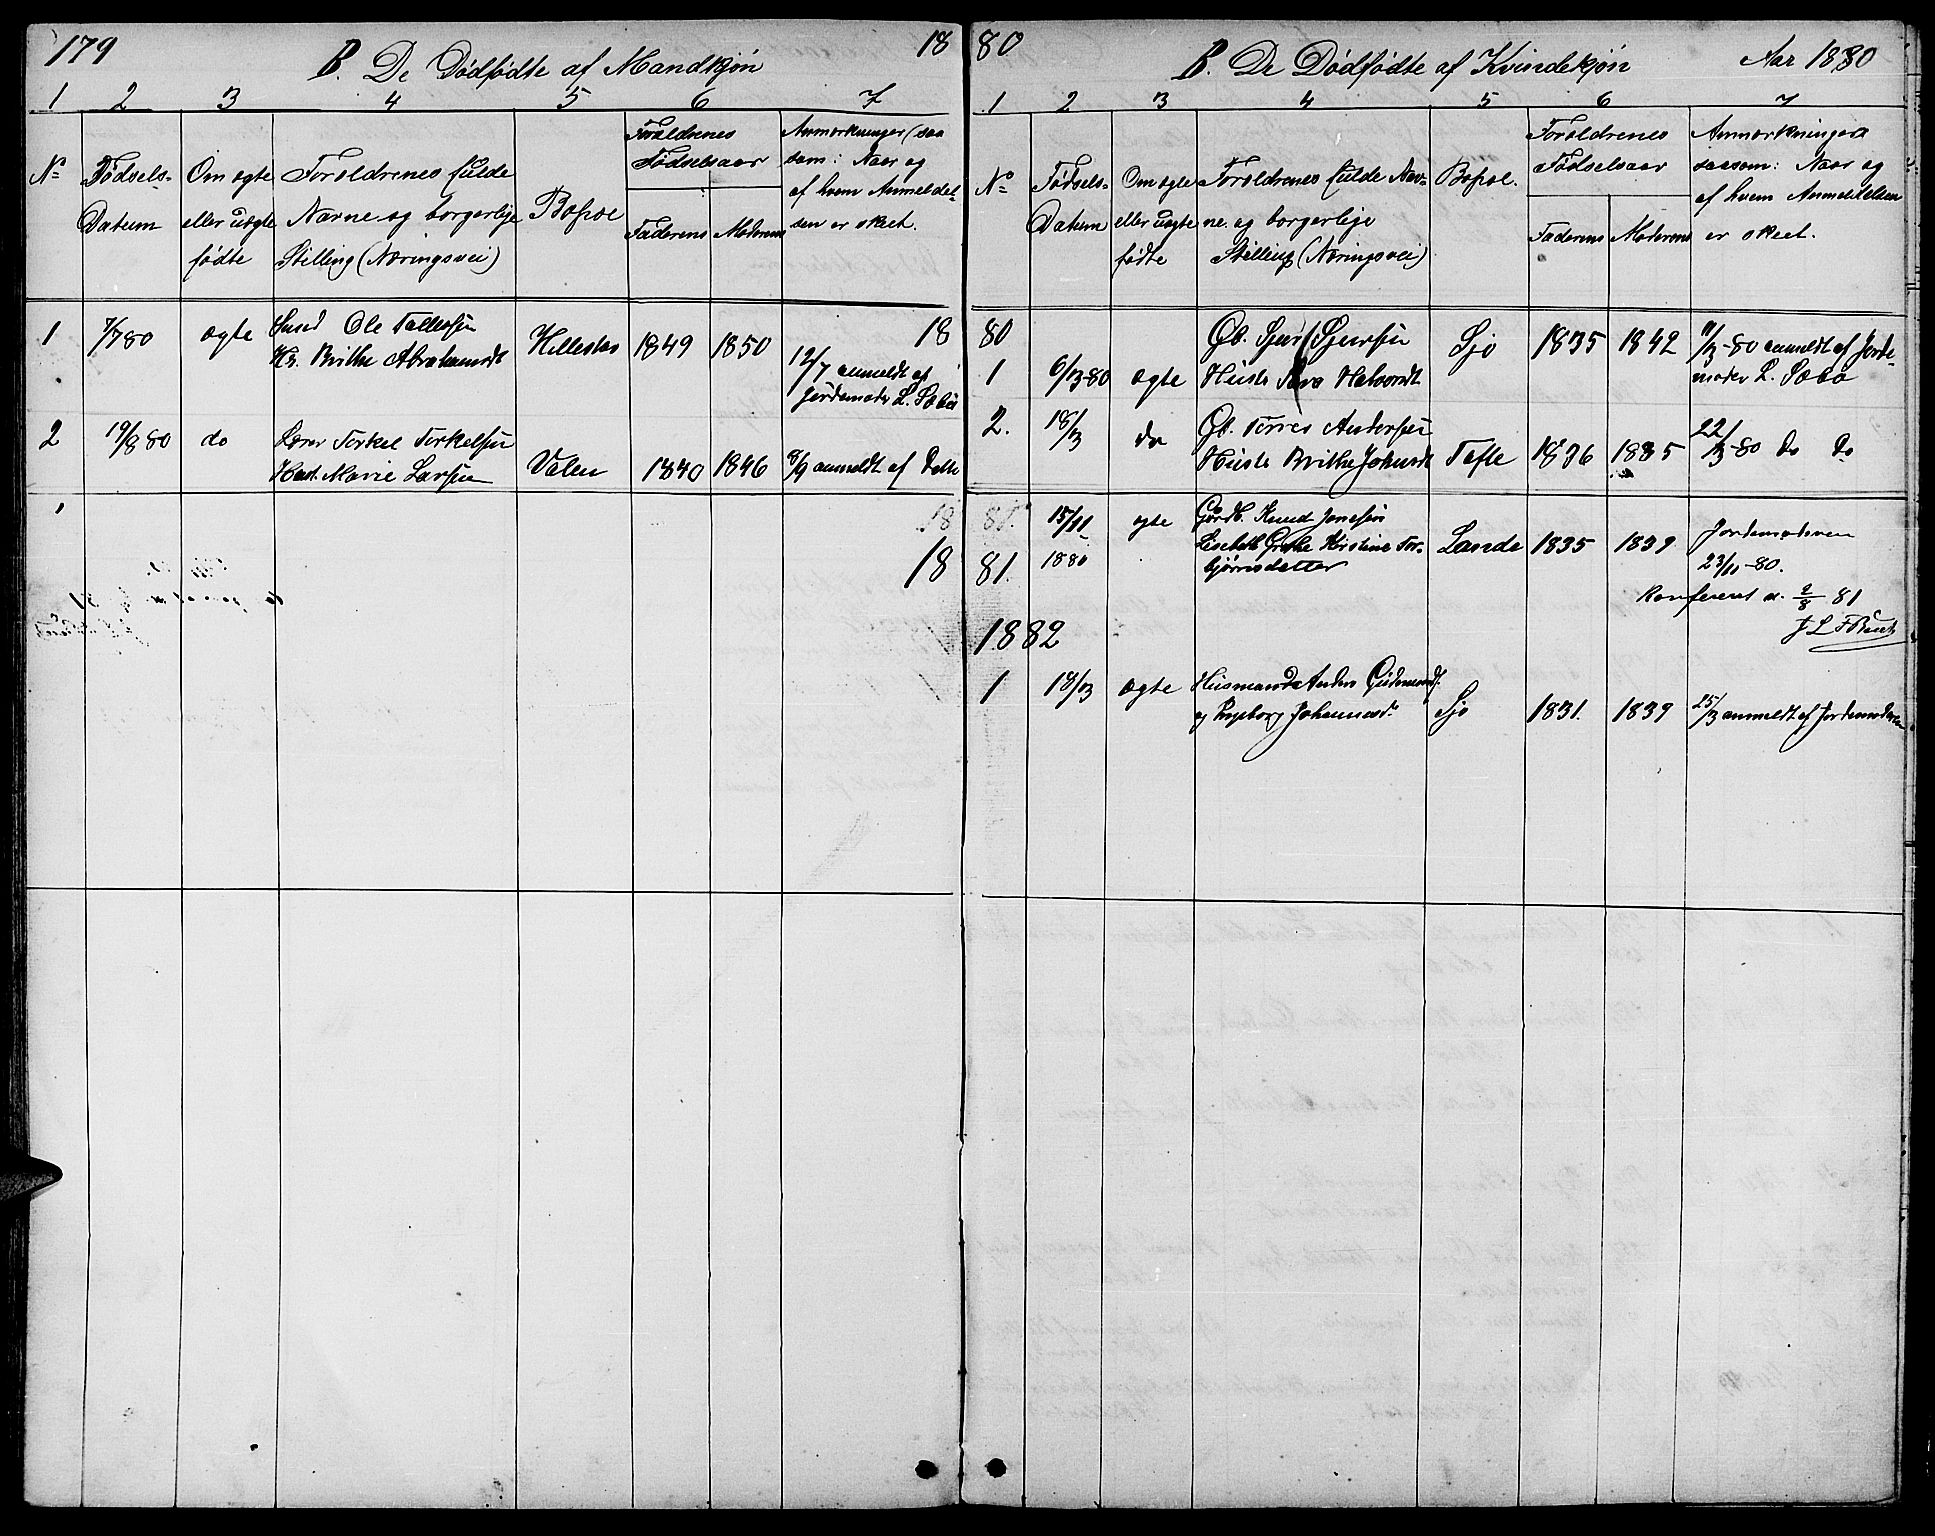 179
B. De Dødfødte af Mandkjøn
18
1 2 3 4 5 6 7
No
Fødsels-
Datum
Om ægte
eller uægte
fødte
Forældrenes fulde
Navne og borgerlige
Stilling (Næringsvei)
Bopæl
Forældrenes
Fødselsaar
Faderens Moderens
Anmærkninger (saa
som: Naar og
af hvem Anmeldel-
sen er skeet.
1 7/7 80 ægte Ole Tollefsen
Brithe Abrahamsdt Hillestad 1849 1850
12/7 anmeldt af
Jordemoder L. Sæbø
2 19/8 80 do Lærer Torkel Torkelsen
Marie Larsen Valen 1840 1846 8/9 anmeldt af Dette
18
18
80
B. De Dødfødte af Kvindekjøn
Aar 1880
1 2 3 4 5 6 7
No
Fødsels-
Datum
Om ægte
eller uægte
fødte
Forældrenes fulde Nav-
ne og borgerlige
Stilling (Næringsvei)
Bopæl.
Forældrenes
Fødselsaar
Faderens Moderens
Anmærkninger
saasom: Naar og
af hvem Anmeldelsen
er skeet.
18 80
1 6/3 80 ægte Gb. Sjur Sjursen
Hustr Halvordt Sjo 1835 1842 11/3-80 anmeldt af Jorde-
moder L. Sæbø
2. 18/3 do Gb. Torres Andersen
Hustr Brithe Johnsdt Tofte 1836 1835 22/3-80 Do Do
81. 15/11
1880 ægte Gårdb. Knud Jonesen
Lisebeth Grethe Kirstine Tor-
bjørnsdatter Lande 1835 1839 Jordemoderen
23/11-80.
81.
Konfereret d. 2/8 81
1882
1 18/3 ægte Husmand Anders Gudmunds.
og Ingeborg Johannesd. Sjo 1831. 1839 25/3 anmeldt af Jordemoderen